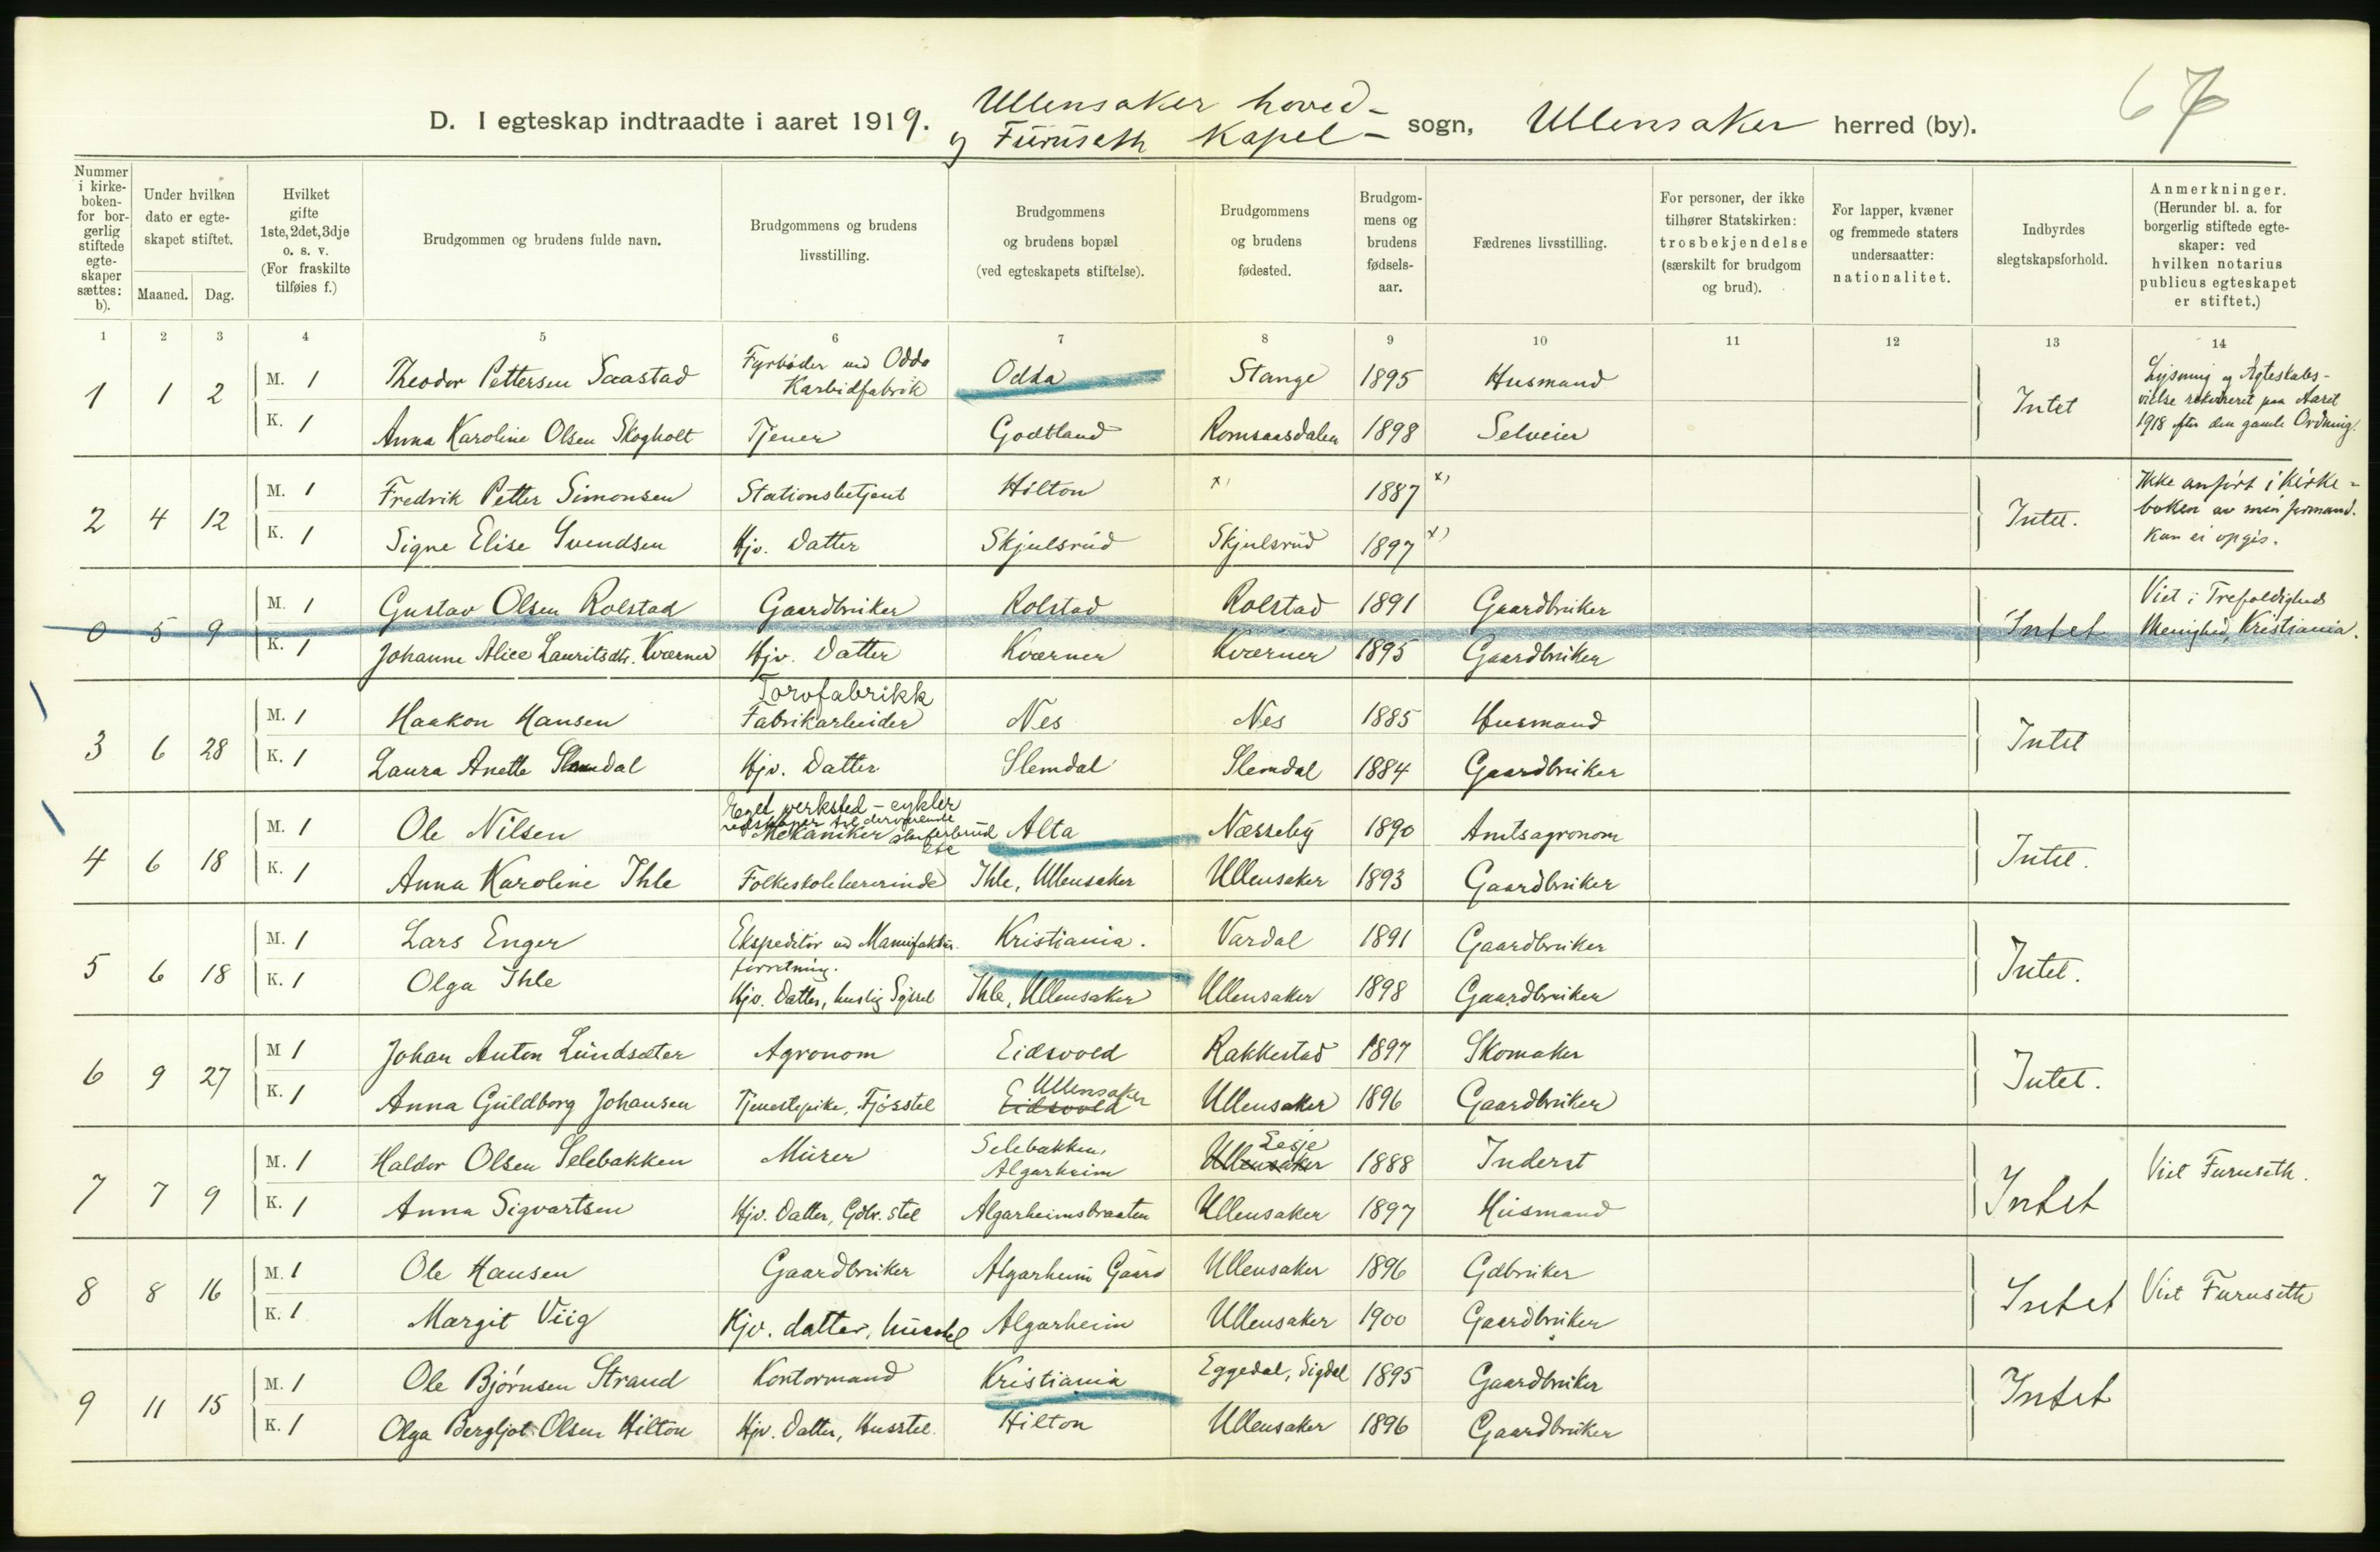 67
Ullensaker hoved-
D. I egteskap indtraadte i aaret 1919. og Furuseth Kapel- sogn, Ullensaker herred (by).
Nummer i kirke-boken- for bor-gerlig stiftede egte-skaper sættes: b).
Under hvilken dato er egte-skapet stiftet.
Maaned. Dag.
Hvilket gifte 1ste, 2det, 3dje o. s. v. (For fraskilte tilføies f.)
Brudgommen og brudens fulde navn.
Brudgommens og brudens livsstilling.
Brudgommens og brudens bopæl (ved egteskapets stiftelse).
Brudgommens og brudens fødested.
Brudgom-mens og brudens fødsels-aar.
Fædrenes livsstilling.
For personer, der ikke tilhører Statskirken: trosbekjendelse (særskilt for brudgom og brud).
For lapper, kvæner og fremmede staters undersaatter: nationalitet.
Indbyrdes slegtskapsforhold.
Anmerkninger. (Herunder bl. a. for borgerlig stiftede egte-skaper: ved hvilken notarius publicus egteskapet er stiftet.)
1 2 3 4 5 6 7 8 9 10 11 12 13 14
1 1 2 M. 1 Theodor Pettersen Saastad Fyrbøder ved Odda Karbidfabrik Odda Stange 1895 Husmand Intet Lysning og Ægteskabs-
vielse rekvireret paa Aaret
1918 efter den gamle Ordning.
K. 1 Anna Karoline Olsen Skogholt Tjener Godtland Romsaasdalen 1898 Selveier
2 4 12 M. 1 Fredrik Petter Simonsen Stationsbetjent Hilton x) 1887 x) Intet. Ikke anført i Kirke-
boken av min formand.
Kan ei opgis.
K. 1 Signe Elise Svendsen Hjv. Datter Skjulsrud Skjulsrud 1897 x)
0 5 9 M. 1 Gustav Olsen Rolstad Gaardbruker Rolstad Rolstad 1891 Gaardbruker Intet Viet i Trefoldigheds
Menighed, Kristiania.
K. 1 Johanne Alice Lauritsdtr. Kværner Hjv. Datter Kværner Kværner 1895 Gaardbruker
3 6 28 M. 1 Haakon Hansen Torvfabrikk Fabrikarbeider Nes Nes 1885 Husmand Intet
K. 1 Laura Anette Slemdal Hjv. Datter Slemdal Slemdal 1884 Gaardbruker
4 6 18 M. 1 Ole Nilsen Eget verksted - cykler Mekaniker Alta Næsseby 1890 Amtsagronom Intet.
K. 1 Anna Karoline Ihle Folkeskolelærerinde Ihle, Ullensaker Ullensaker 1893 Gaardbruker
5 6 18 M. 1 Lars Enger Ekspeditør ved Manufaktur-
forretning. Kristiania. Vardal 1891 Gaardbruker Intet.
K. 1 Olga Ihle Hjv. Datter, huslig Syssel Ihle, Ullensaker Ullensaker 1898 Gaardbruker
6 9 27 M 1 Johan Anton Lundsæter Agronom Eidsvold Rakkestad 1897 Skomaker Intet.
K. 1 Anna Guldborg Johansen Tjenestepike, Fjøsstel Ullensaker Eidsvold Ullensaker 1896 Gaardbruker
7 7 9 M. 1 Haldor Olsen Selebakken Murer Selebakken, Algarheim Lesje Ullensaker 1888 Inderst Intet Viet Furuseth.
K. 1 Anna Sigvartsen Hjv. Datter, Gdbr. stel Algarheimsbraaten Ullensaker 1897 Husmand
8 8 16 M. 1 Ole Hansen Gaardbruker Algarheim Gaard Ullensaker 1896 Gdbruker Intet Viet Furuseth
K. 1 Margit Viig Hjv. datter, husstel Algarheim Ullensaker 1900 Gaardbruker
9 11 15 M. 1 Ole Bjørnsen Strand Kontormand Kristiania Eggedal, Sigdal 1895 Gaardbruker Intet
K. 1 Olga Bergljot Olsen Hilton Hjv. Datter, Husstel. Hilton Ullensaker 1896 Gaardbruker